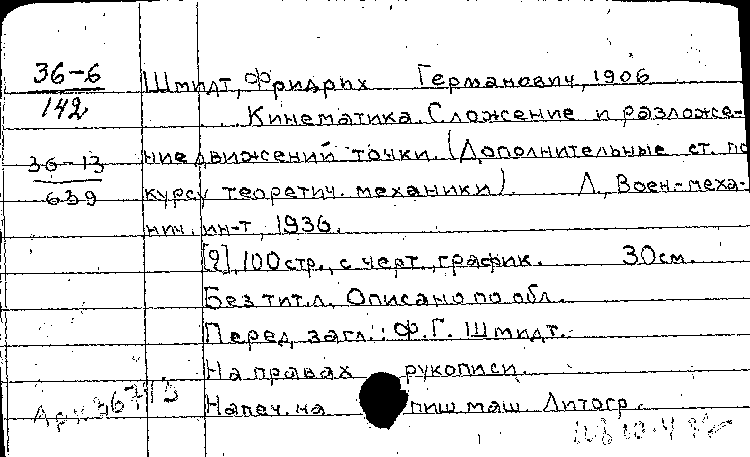 36-6
142
36-13
639
Шмидт, Фридрих Германович, 1906
Кинематика. Сложение и разложе-
ние движений точки. (Дополнительные ст. по
курсу теоретич. механики). Л., Воен-меха-
нич. ин-т, 1936.
[2], 100 стр., с черт., график. 30 см.
Без тит. л. Описано по обл.
Перед загл.: Ф.Г. Шмидт.
На правах рукописи.
Напеч. на пиш маш. Литогр.